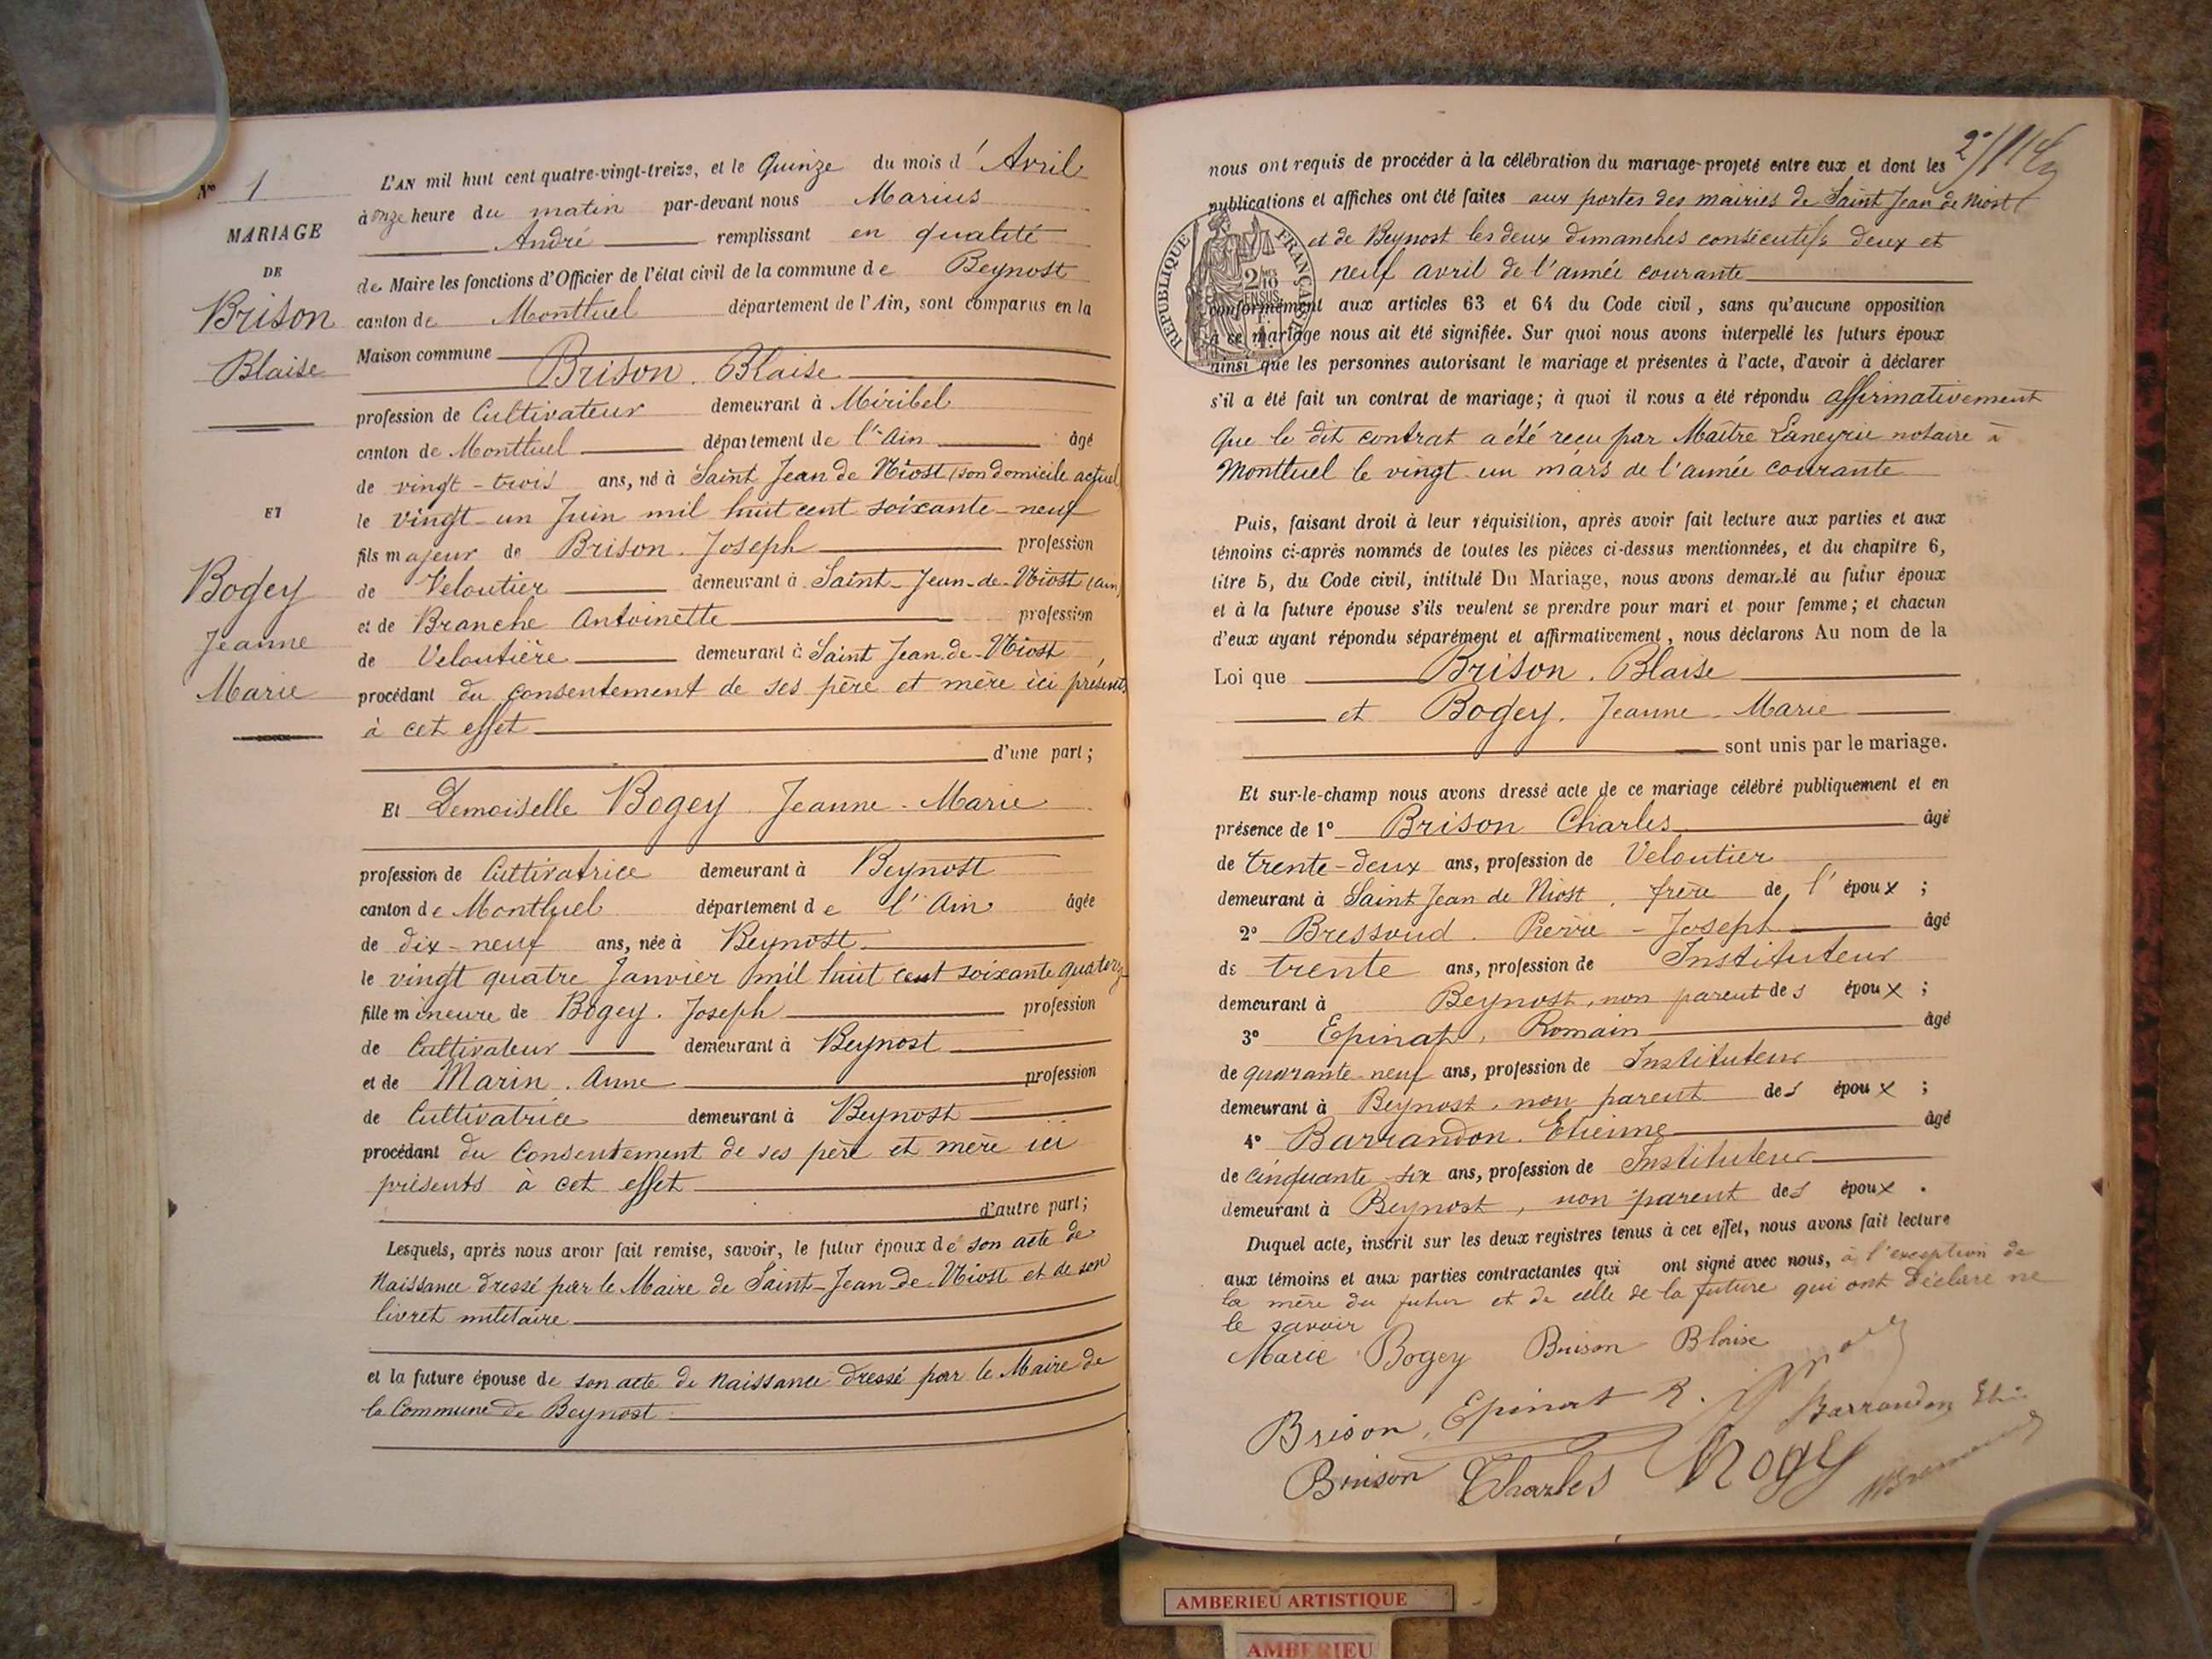 N° 1
MARIAGE
DE
Brison
Blaise
ET
Bogey
Jeanne
Marie
L'AN mil huit cent quatre-vingt-treize, et le Quinze du mois d'Avril
à onze heure du matin par-devant nous Marius
André remplissant en qualité
de Maire les fonctions d'Officier de l'état civil de la commune de Beynost
canton de Montluel département de l'Ain, sont comparus en la
Maison commune
Brison. Blaise
profession de Cultivateur demeurant à Miribel
canton de Montluel département de l'Ain âgé
de vingt-trois ans, né à Saint Jean de Niost (son domicile actuel)
le vingt-un Juin mil huit cent soixante-neuf
fils majeur de Brison. Joseph profession
de Veloutier demeurant à Saint-Jean-de-Niost (ain)
et de Branche Antoinette profession
de Veloutière demeurant à Saint Jean-de-Niost,
procédant du consentement de ses père et mère ici présents
à cet effet
d'une part;
Et Demoiselle Bogey. Jeanne-Marie
profession de Cultivatrice demeurant à Beynost
canton de Montluel département de l'Ain âgée
de dix-neuf ans, née à Beynost
le vingt quatre Janvier mil huit cent soixante quatorz
fille mineure de Bogey. Joseph profession
de Cultivateur demeurant à Beynost
et de Marin. Anne profession
de Cultivatrice demeurant à Beynost
procédant du Consentement de ses père et mère ici
présents à cet effet
d'autre part;
Lesquels, après nous avoir fait remise, savoir, le futur époux de son acte de
Naissance dressé par le Maire de Saint-Jean-de-Niost et de son
livret militaire
et la future épouse de son acte de Naissance dressé par le Maire de
la Commune de Beynost
nous ont requis de procéder à la célébration du mariage projeté entre eux et dont les
publications et affiches ont été faites aux portes des mairies de Saint Jean de Niost
et de Beynost les deux dimanches consécutifs deux et
neuf avril de l'année courante
RÉPUBLIQUE FRANÇAISE
conformément aux articles 63 et 64 du Code civil, sans qu'aucune opposition
à ce mariage nous ait été signifiée. Sur quoi nous avons interpellé les futurs époux
ainsi que les personnes autorisant le mariage et présentes à l'acte, d'avoir à déclarer
s'il a été fait un contrat de mariage; à quoi il nous a été répondu affirmativement
Que le dit contrat a été reçu par Maître Laneyrie notaire à
Montluel le vingt-un mars de l'année courante
Puis, faisant droit à leur réquisition, après avoir fait lecture aux parties et aux
témoins ci-après nommés de toutes les pièces ci-dessus mentionnées, et du chapitre 6,
titre 5, du Code civil, intitulé Du Mariage, nous avons demandé au futur époux
et à la future épouse s'ils veulent se prendre pour mari et pour femme; et chacun
d'eux ayant répondu séparément et affirmativement, nous déclarons Au nom de la
Loi que Brison. Blaise
et Bogey. Jeanne-Marie
sont unis par le mariage.
Et sur-le-champ nous avons dressé acte de ce mariage célébré publiquement et en
présence de 1° Brison Charles âgé
de trente-deux ans, profession de Veloutier
demeurant à Saint Jean de Niost, frère de l'époux;
2° Bressoud. Pierre-Joseph âgé
de trente ans, profession de Instituteur
demeurant à Beynost, non parent des époux;
3° Epinat, Romain âgé
de quarante-neuf ans, profession de Instituteur
demeurant à Beynost, non parent des époux;
4° Barrandon. Etienne âgé
de cinquante-six ans, profession de Instituteur
demeurant à Beynost, non parent des époux.
Duquel acte, inscrit sur les deux registres tenus à cet effet, nous avons fait lecture
aux témoins et aux parties contractantes qui ont signé avec nous, à l'exception de
la mère du futur et de celle de la future qui ont déclaré ne
le savoir
Marie Bogey Brison Blaise
Brison, Epinat R. Barrandon
Brison Charles Bogey
AMBERIEU ARTISTIQUE
AMBERIEU